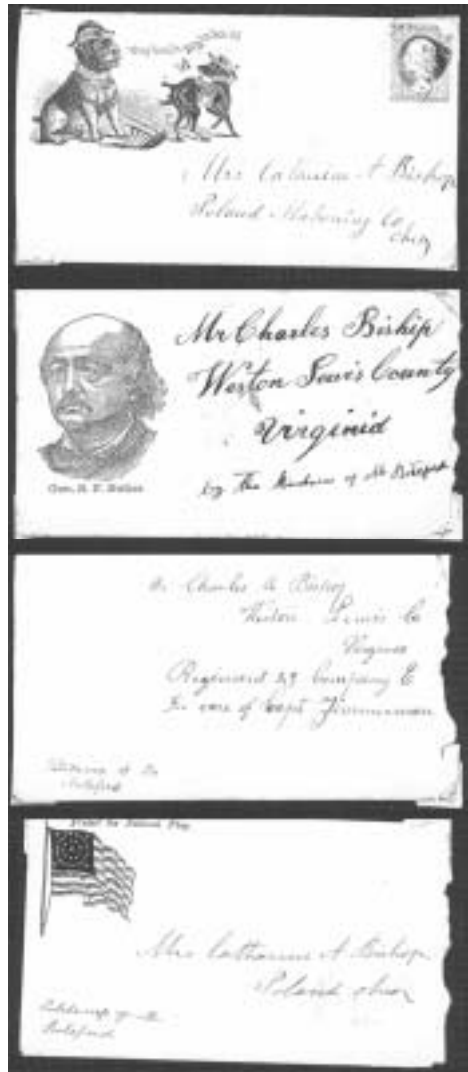 Mrs Catharine A Bishop
Poland Mahoning Co
Ohio
Mr Charles Biship
Weston Lewis County
Virginid
by the kindness of Mr
Gen. B. F. Butler
Mr Charles A Bishop
Weston Lewis Co
Virginia
Regiment 23 Company E
In care of Capt Zimmerman
National Flag
Mrs Catharine A Bishop
Poland ohio